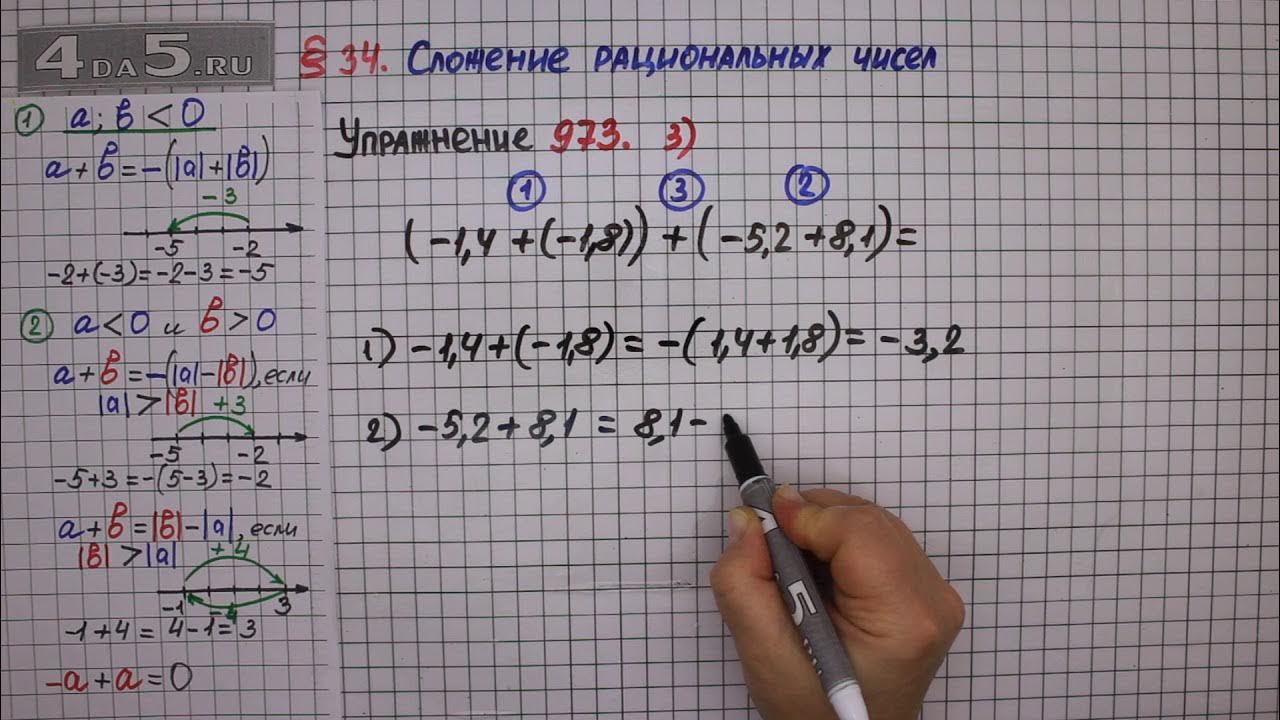 4DA5.RU
§ 34. Сложение рациональных чисел
① a; b < 0
a + b = -(|a|+|b|)
-3
-5 -2
-2+(-3)=-2-3=-5
② a < 0 и b > 0
a + b = -(|a|-|b|), если
|a| > |b| +3
-5 -2
-5+3=-(5-3)=-2
a + b = |b|-|a|, если
|b| > |a| +4
-1 -4 3
-1+4 = 4-1=3
-a + a = 0
Упражнение 973. 3)
① ③ ②
(-1,4 +(-1,8)) + (-5,2 +8,1)=
1) -1,4+(-1,8) = -(1,4+1,8)= -3,2
2) -5,2+8,1 = 8,1-
5